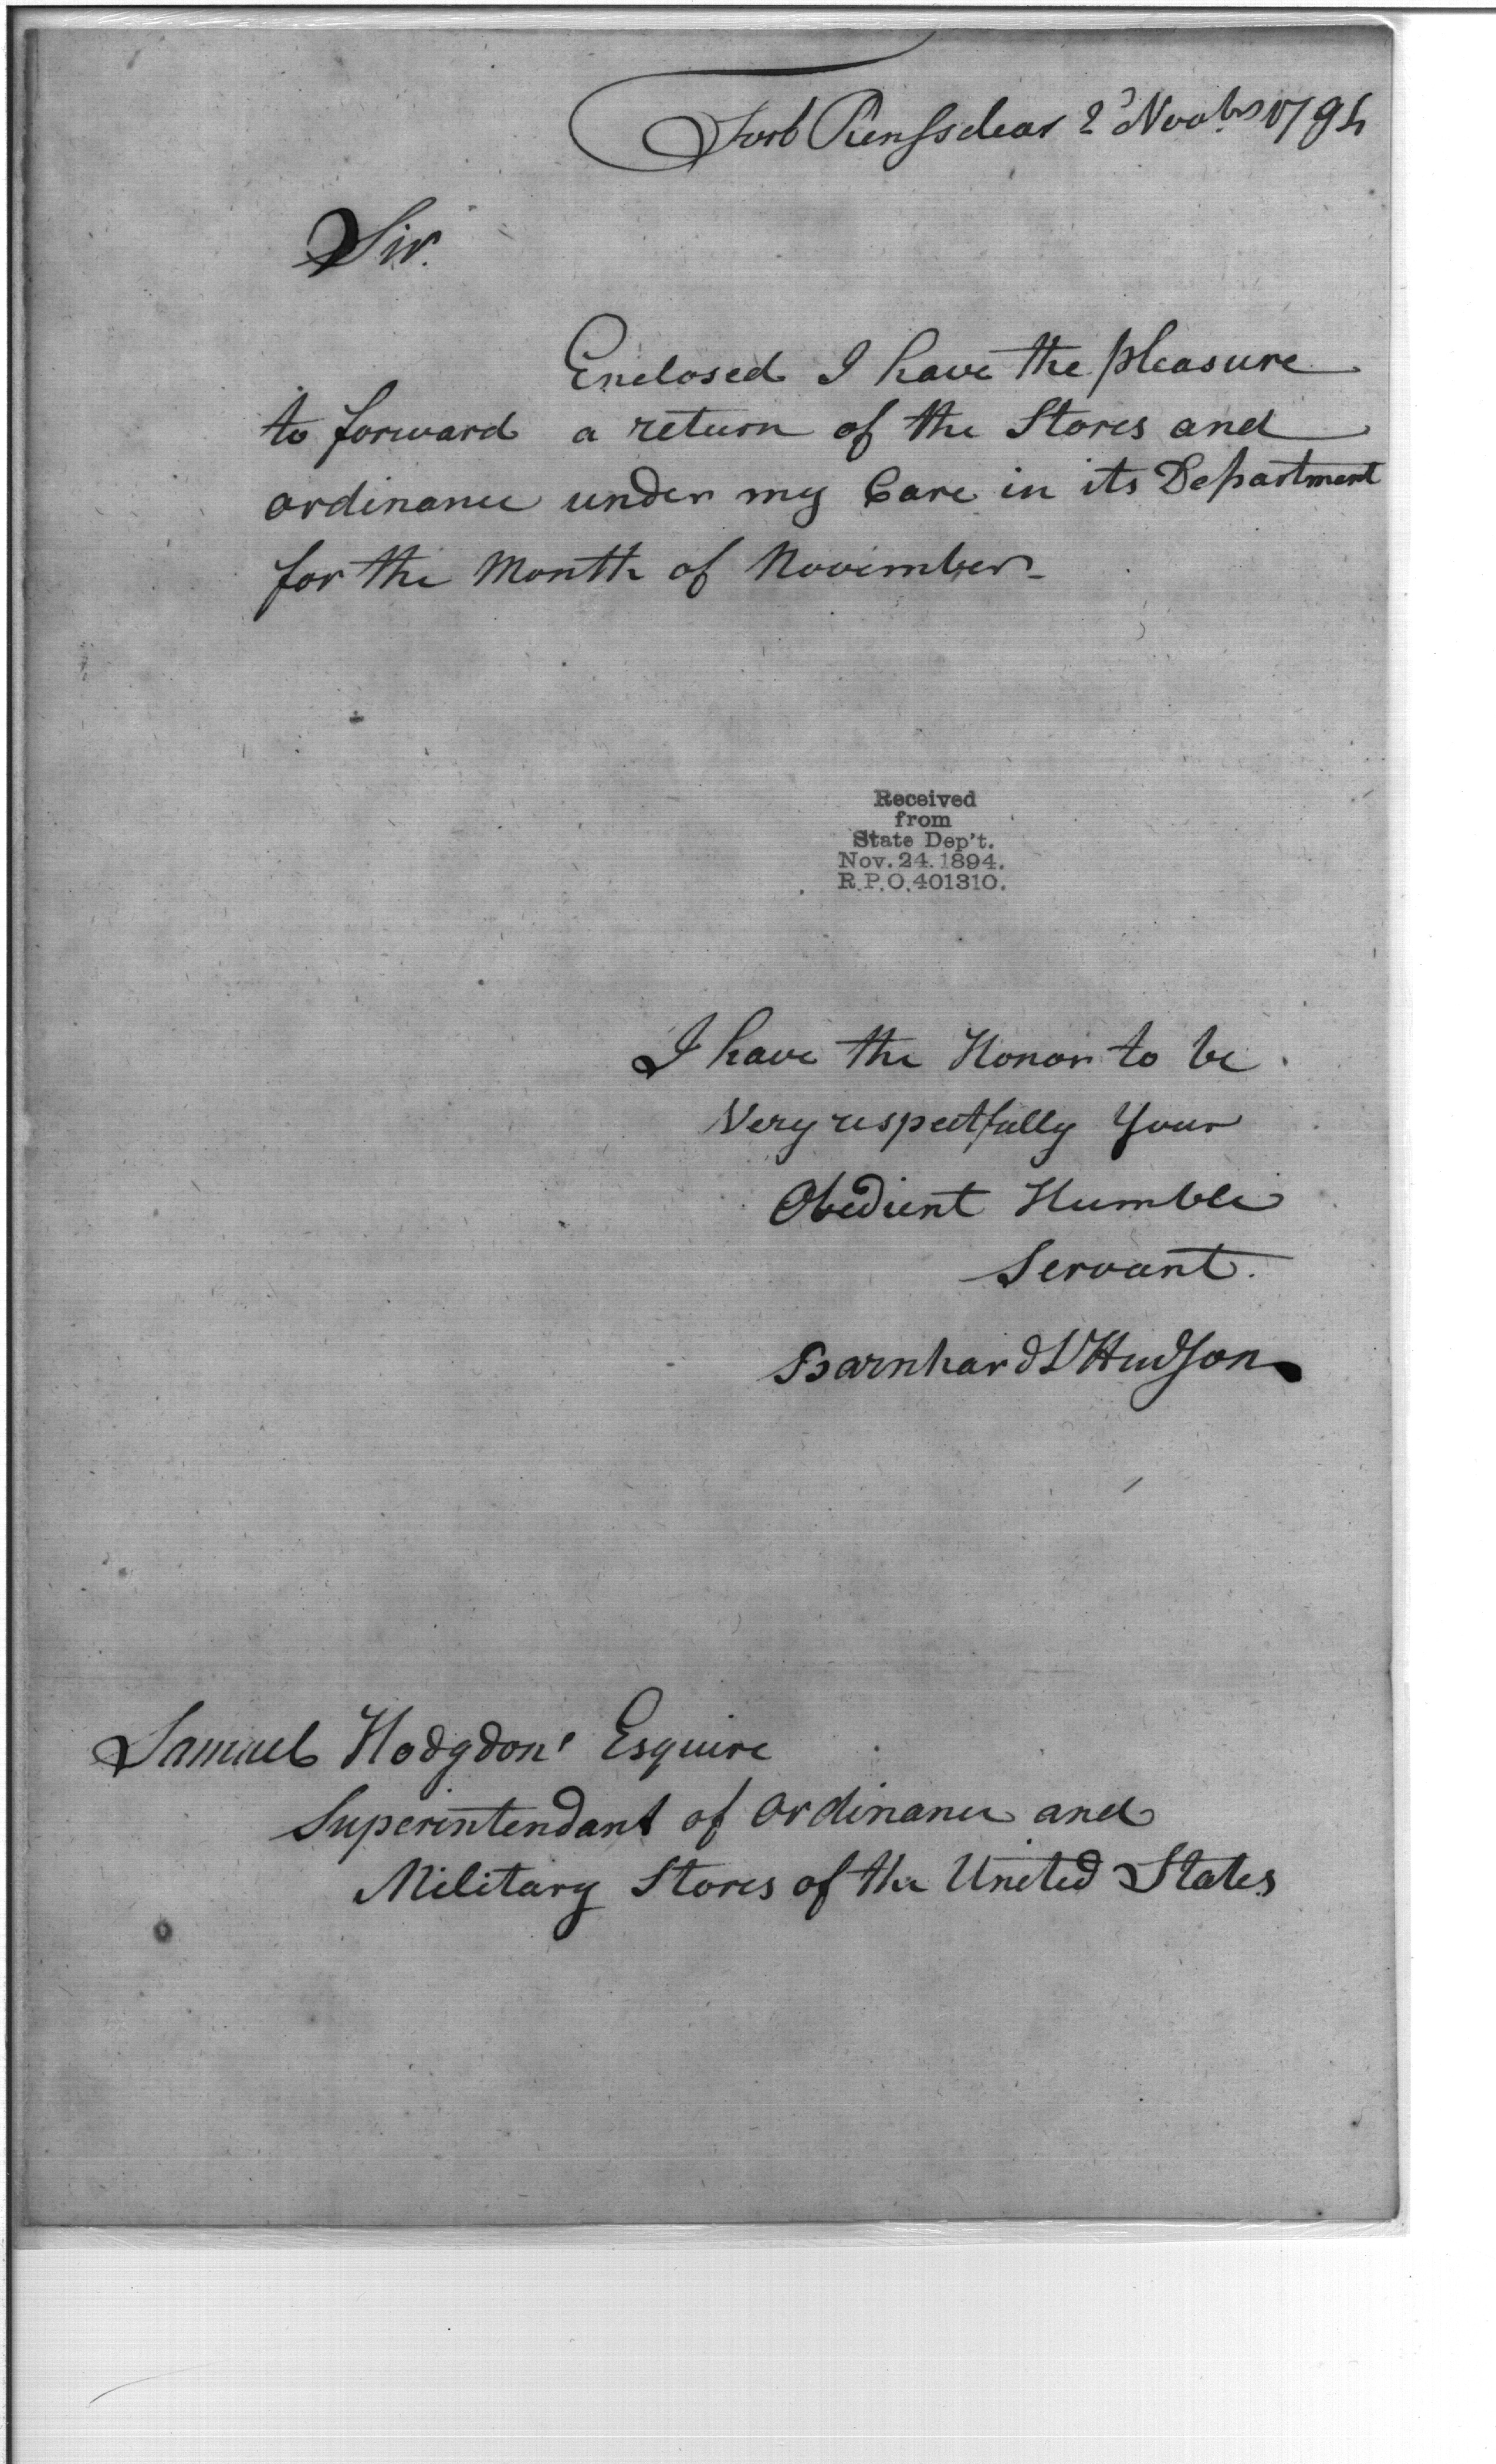 Fort Renssclear 2d Novbr 1794
Sir.
Enclosed I have the pleasure
to forward a return of the Stores and
ordinance under my Care in its Department
for the Month of November
Received
from
State Dep't.
Nov. 24. 1894.
R.P.O. 401310.
I have the Honor to be
Very respectfully Your
Obedient Humble
Servant.
Barnhard V Hudson
Samuel Hodgdon Esquire
Superintendant of Ordinance and
Military Stores of the United States